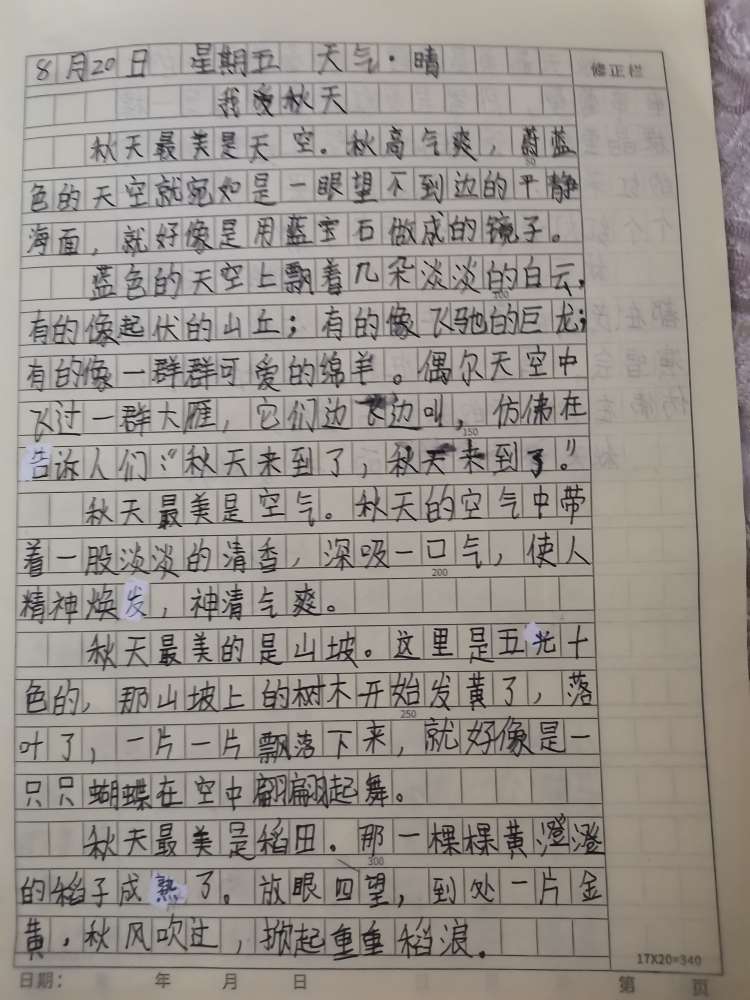 8月20日 星期五 天气·晴
修正栏
我爱秋天
秋天最美是天空。秋高气爽，蔚蓝
50
色的天空就宛如是一眼望不到边的平静
海面，就好像是用蓝宝石做成的镜子。
蓝色的天空上飘着几朵淡淡的白云，
100
有的像起伏的山丘；有的像飞驰的巨龙；
有的像一群群可爱的绵羊。偶尔天空中
飞过一群大雁，它们边飞边叫，仿佛在
150
告诉人们：“秋天来到了，秋天来到了。”
秋天最美是空气。秋天的空气中带
着一股淡淡的清香，深吸一口气，使人
200
精神焕发，神清气爽。
秋天最美的是山坡。这里是五光十
色的，那山坡上的树木开始发黄了，落
250
叶了，一片一片飘落下来，就好像是一
只只蝴蝶在空中翩翩起舞。
秋天最美是稻田。那一棵棵黄澄澄
300
的稻子成熟了。放眼四望，到处一片金
黄，秋风吹过，掀起重重稻浪。
17X20=340
日期： 年 月 日 第 页